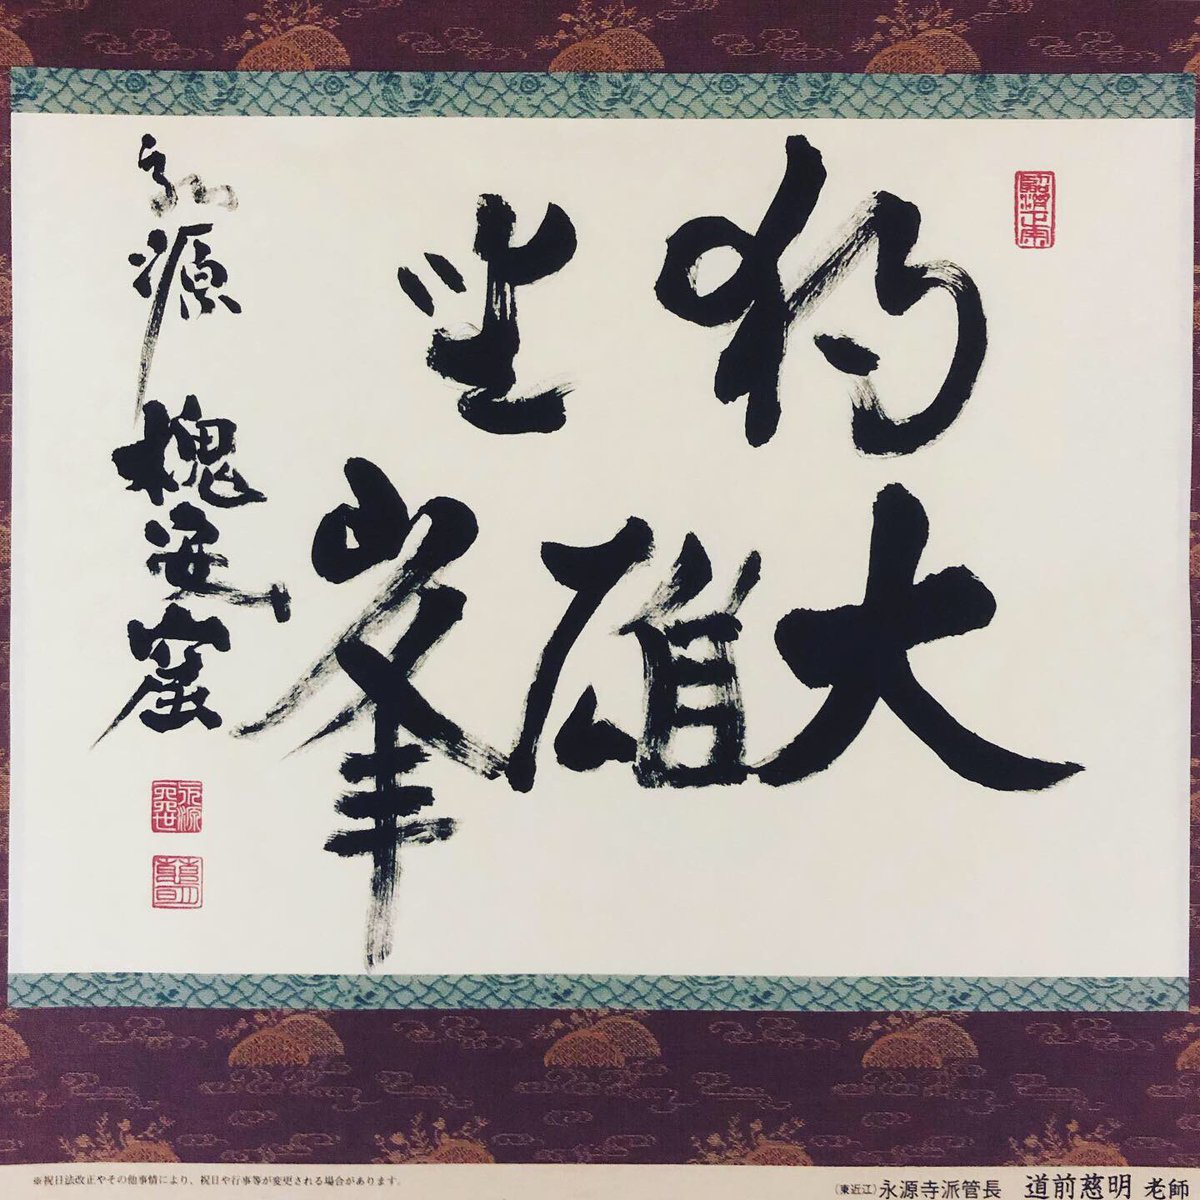 独坐
大雄峯
永源 槐安窟
※祝日法改正やその他事情により、祝日や行事等が変更される場合があります。
(東近江)永源寺派管長 道前慈明 老師